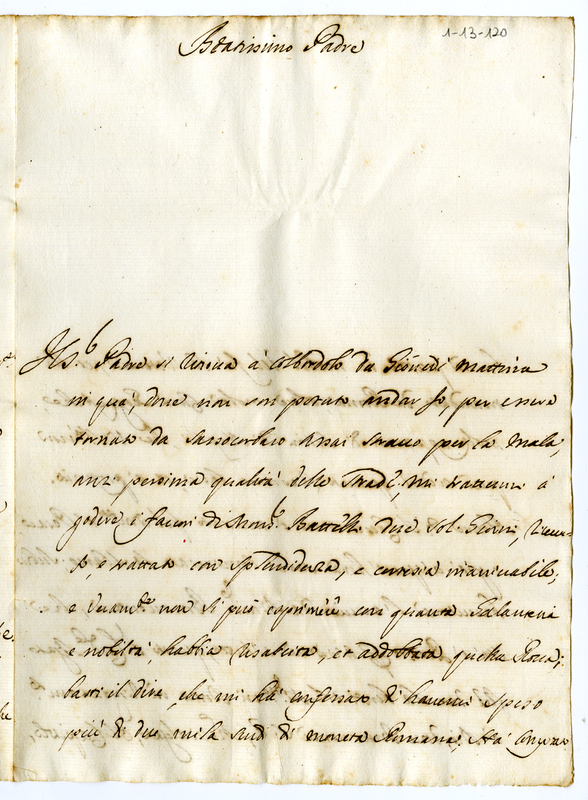 1-13-120
Beatissimo Padre
Il S.r Padre si ritrova à Colbordolo da Giovedi mattina
in quà, dove non son potuto andar Io, per essere
tornato da Sassocorbaro assai stracco per la mala,
anzi pessima qualità delle Strade, mi trattenni à
godere i favori di Mons.r Battelli due Sol Giorni,
e trattato con splendidezza, e cortesia inarrivabile;
e veram.te non si può esprimere con quanta Galanteria
e nobiltà, habbia risarcita, et addobbata quella Rocca;
basti il dire, che mi hà confessato di havervi speso
più di due mila scudi di moneta Romana; Hà